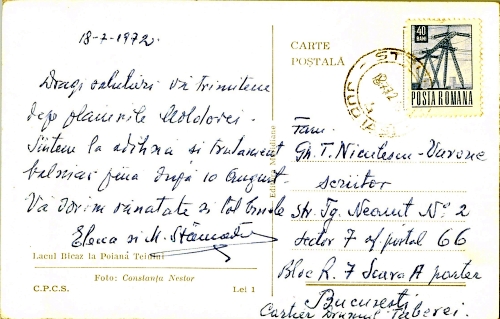 18-7-1972.
Dragi salutări vă trimitem
depe plaiurile Moldovei.
Sîntem la odihnă și tratament
balnear pînă după 10 August.
Vă dorim sănătate și tot binele
Elena și M.
Lacul Bicaz la Poiana Teiului
Foto: Constanța Nestor
C.P.C.S.
Lei 1
CARTE
POȘTALĂ
40
BANI
POSTA ROMANA
Fam.
Gh. T. Niculescu-Varone
scriitor
Str. Tg. Neamț No 2
sector 7 of. poștal 66
Bloc R. 7 Scara A parter
București
Cartier Drumul Taberei.